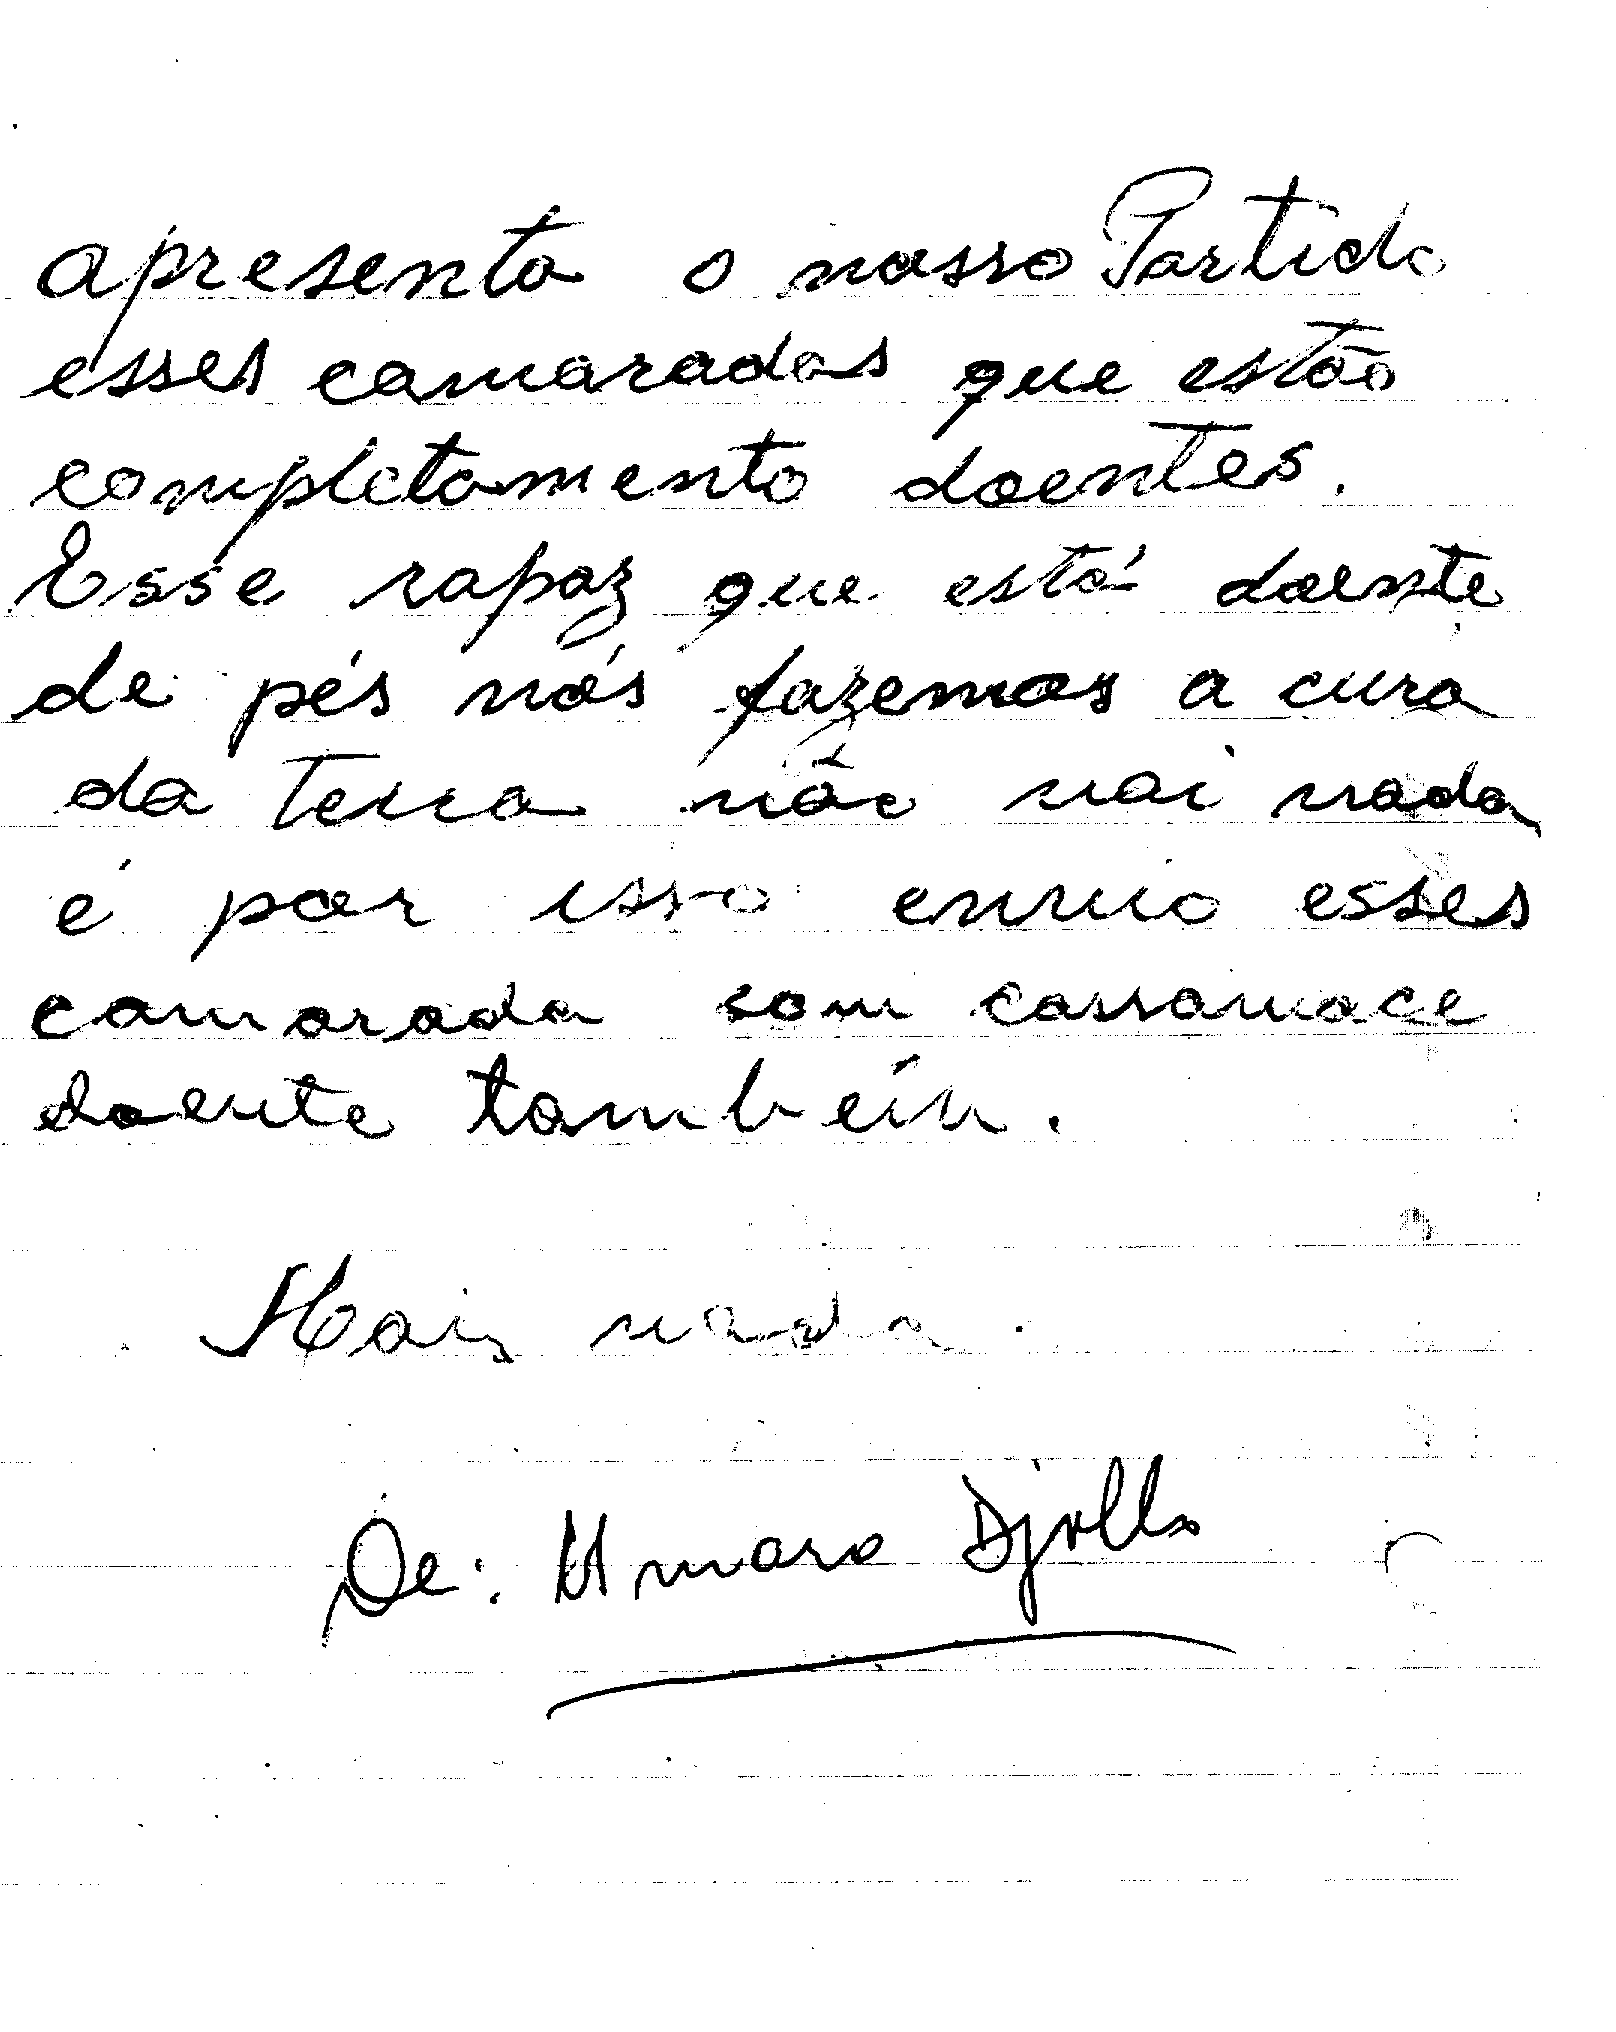 apresenta o nosso Partido
esses camaradas que estão
completamento doentes.
Esse rapaz que está doente
de pés nós fazemos a cura
da terra não vai nada
é por isso envio esses
camarada com cassamace
doente também.
Mais nada.
De: Umaro Djallo